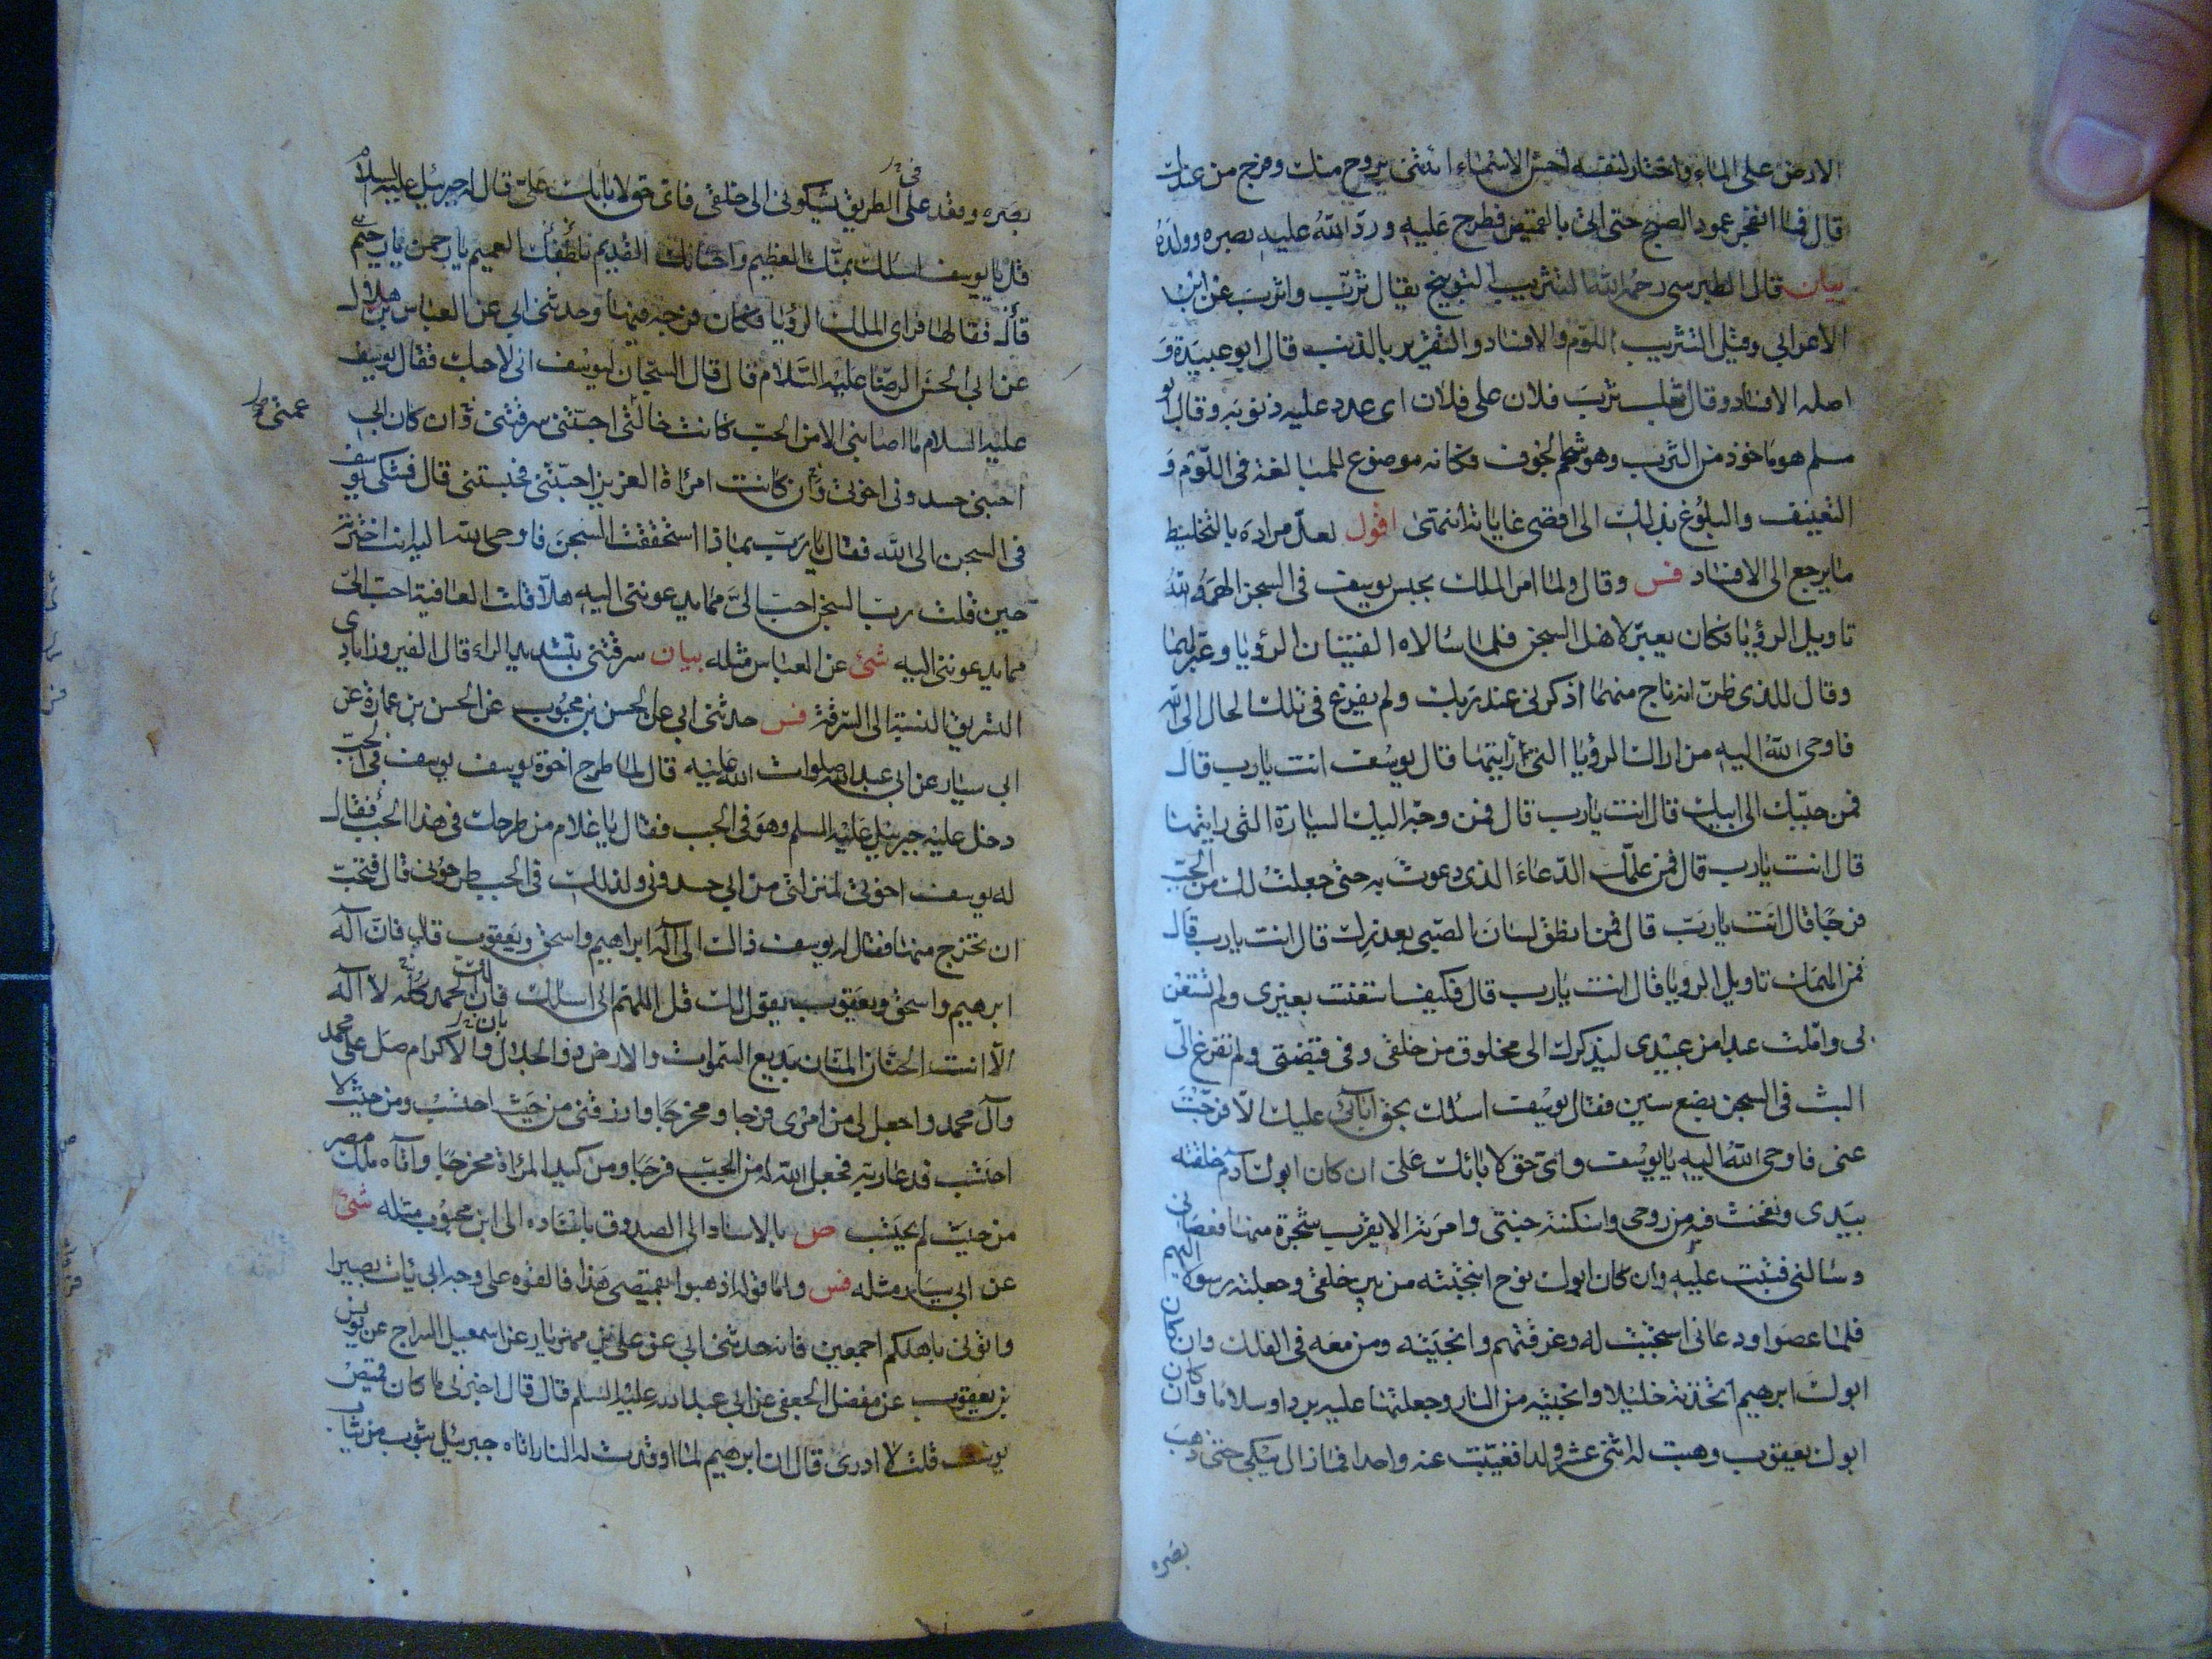 الارض على الماء واختار لنفسه احسن الاسماء ائتنى بروح منك وفرج من عندك
قال فما انفجر عمود الصبح حتى اتى بالقميص فطرح عليه ورد الله عليه بصره وولده
بيان قال الطبرسى رحمه الله التثريب التوبيخ يقال ثرب واثرب عن ابن
الاعرابي وقيل التثريب اللوم والافساد والتقرير بالذنب قال ابو عبيدة و
اصله الافساد وقال ثعلب ثرب فلان على فلان اى عدد عليه ذنوبه وقال ابو
مسلم هو ماخوذ من الثرب وهو شحم الجوف فكانه موضوع للمبالغة فى اللوم و
التعنيف والبلوغ بذلك الى اقصى غاياته انتهى اقول لعل مراده بالتخليط
ما يرجع الى الافساد فس وقال ولما امر الملك بحبس يوسف فى السجن الهمه الله
تاويل الرؤيا فكان يعبر لاهل السجن فلما سالاه الفتيان الرؤيا وعبر لهما
وقال للذى ظن انه ناج منهما اذكرنى عند ربك ولم يفزع فى تلك الحال الى الله
فاوحى الله اليه من اراك الرؤيا التى رايتها قال يوسف انت يارب قال
فمن حببك الى ابيك قال انت يارب قال فمن وجه اليك السيارة التى رايتها
قال انت يارب قال فمن علمك الدعاء الذى دعوت به حتى جعلت لك من الجب
فرجا قال انت يارب قال فمن انطق لسان الصبى بعذرك قال انت يارب قال
فمن الهمك تاويل الرويا قال انت يارب قال فكيف استعنت بغيرى ولم تستعن
بى واملت عبدا من عبيدى ليذكرك الى مخلوق من خلقى وفى قبضتى ولم تفزع الى
البث فى السجن بضع سنين فقال يوسف اسئلك بحق ابائى عليك الا فرجت
عنى فاوحى الله اليه يا يوسف واى حق لابائك على ان كان ابوك آدم خلقته
بيدى ونفخت فيه من روحى واسكنته جنتى وامرته الا يقرب شجرة منها فعصانى
وسالنى فتبت عليه وان كان ابوك نوح انتجبته من بين خلقى وجعلته رسولا اليهم
فلما عصوا ودعانى استجبت له وغرقتهم وانجيته ومن معه فى الفلك وان كان
ابوك ابرهيم اتخذته خليلا وانجيته من النار وجعلتها عليه بردا وسلاما وان كان
ابوك يعقوب وهبت له اثنى عشر ولدا فغيبت عنه واحدا فما زال يبكى حتى ذهب
بصره
فى
بصره وقعد على الطريق يشكونى الى خلقى فاى حق لابائك على قال له جبرئيل عليه السلام
قل يا يوسف اسئلك بمنك العظيم واحسانك القديم ولطفك العميم يا رحمن يا رحيم
قال فقالها فراى الملك الرؤيا فكان فرجه فيها وحدثنى ابي عن العباس بن هلال
عن ابى الحسن الرضا عليه السلام قال قال السجان ليوسف انى لاحبك فقال يوسف
عليه السلام ما اصابنى الا من الحب كانت خالتى احبتنى سرقتنى وان كان ابى
عمتى
احبنى حسدونى اخوتى وان كانت امراة العزيز احبتنى فحبستنى قال فشكى يوسف
فى السجن الى الله فقال يا رب بماذا استحققت السجن فاوحى الله اليه انت اخترته
حين قلت رب السجن احب الى مما يدعوننى اليه هلا قلت العافية احب الى
مما يدعوننى اليه شى عن العباس مثله بيان سرقتنى بتشديد الراء قال الفيروزابادى
التسريق النسبة الى السرقة فس حدثنى ابي عن الحسن بن محبوب عن الحسن بن عمارة عن
ابى سيار عن ابى عبد الله صلوات الله عليه قال لما طرح اخوة يوسف يوسف فى الجب
دخل عليه جبرئيل عليه السلم وهو فى الجب فقال يا غلام من طرحك فى هذا الجب فقال
له يوسف اخوتى لمنزلتى من ابي حسدونى ولذلك فى الجب طرحونى قال فتحب
ان تخرج منها فقال له يوسف ذلك الى اله ابراهيم واسحق ويعقوب قال فان اله
ابرهيم واسحق ويعقوب يقول لك قل اللهم انى اسئلك فان لك الحمد كله لا اله
بان
الا انت الحنان المنان بديع السموات والارض ذو الجلال والاكرام صل على محمد
وآل محمد واجعل لى من امرى فرجا ومخرجا وارزقنى من حيث احتسب ومن حيث لا
احتسب فدعا ربه فجعل الله له من الجب فرجا ومن كيد المراة مخرجا وآتاه ملك مصر
من حيث لم يحتسب ص بالاسناد الى الصدوق باسناده الى ابن محبوب مثله شى
عن ابى سيار مثله فس واما قوله اذهبوا بقميصى هذا فالقوه على وجه ابى يات بصيرا
واتونى باهلكم اجمعين فانه حدثنى ابى عن على بن مهزيار عن اسمعيل السراج عن يونس
بن يعقوب عن مفضل الجعفى عن ابى عبد الله عليه السلم قال قال اخبرنى ما كان قميص
يوسف قلت لا ادرى قال ان ابرهيم لما اوقدت له النار اتاه جبرئيل بثوب من ثياب